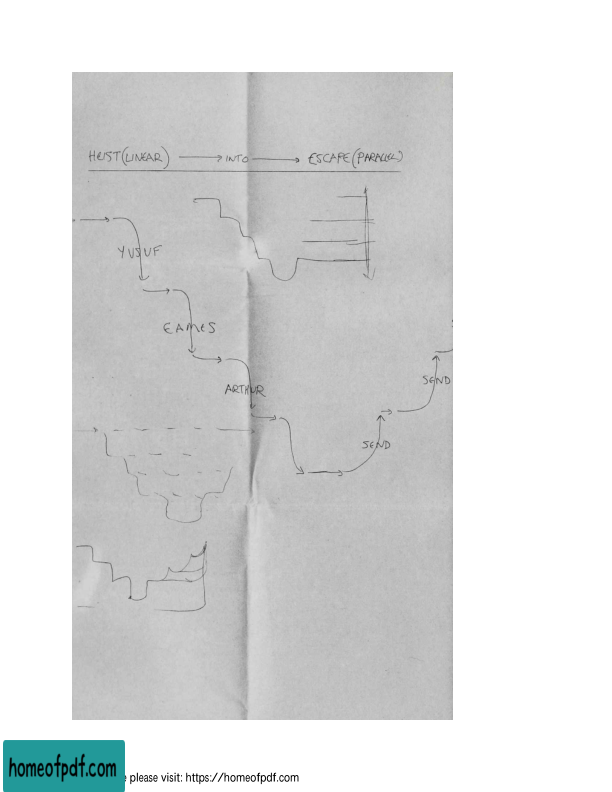 HEIST (LINEAR) → INTO → ESCAPE (PARALLEL)
YUSUF
EAMES
ARTHUR
SEND
SEND
homeofpdf.com
e please visit: https://homeofpdf.com